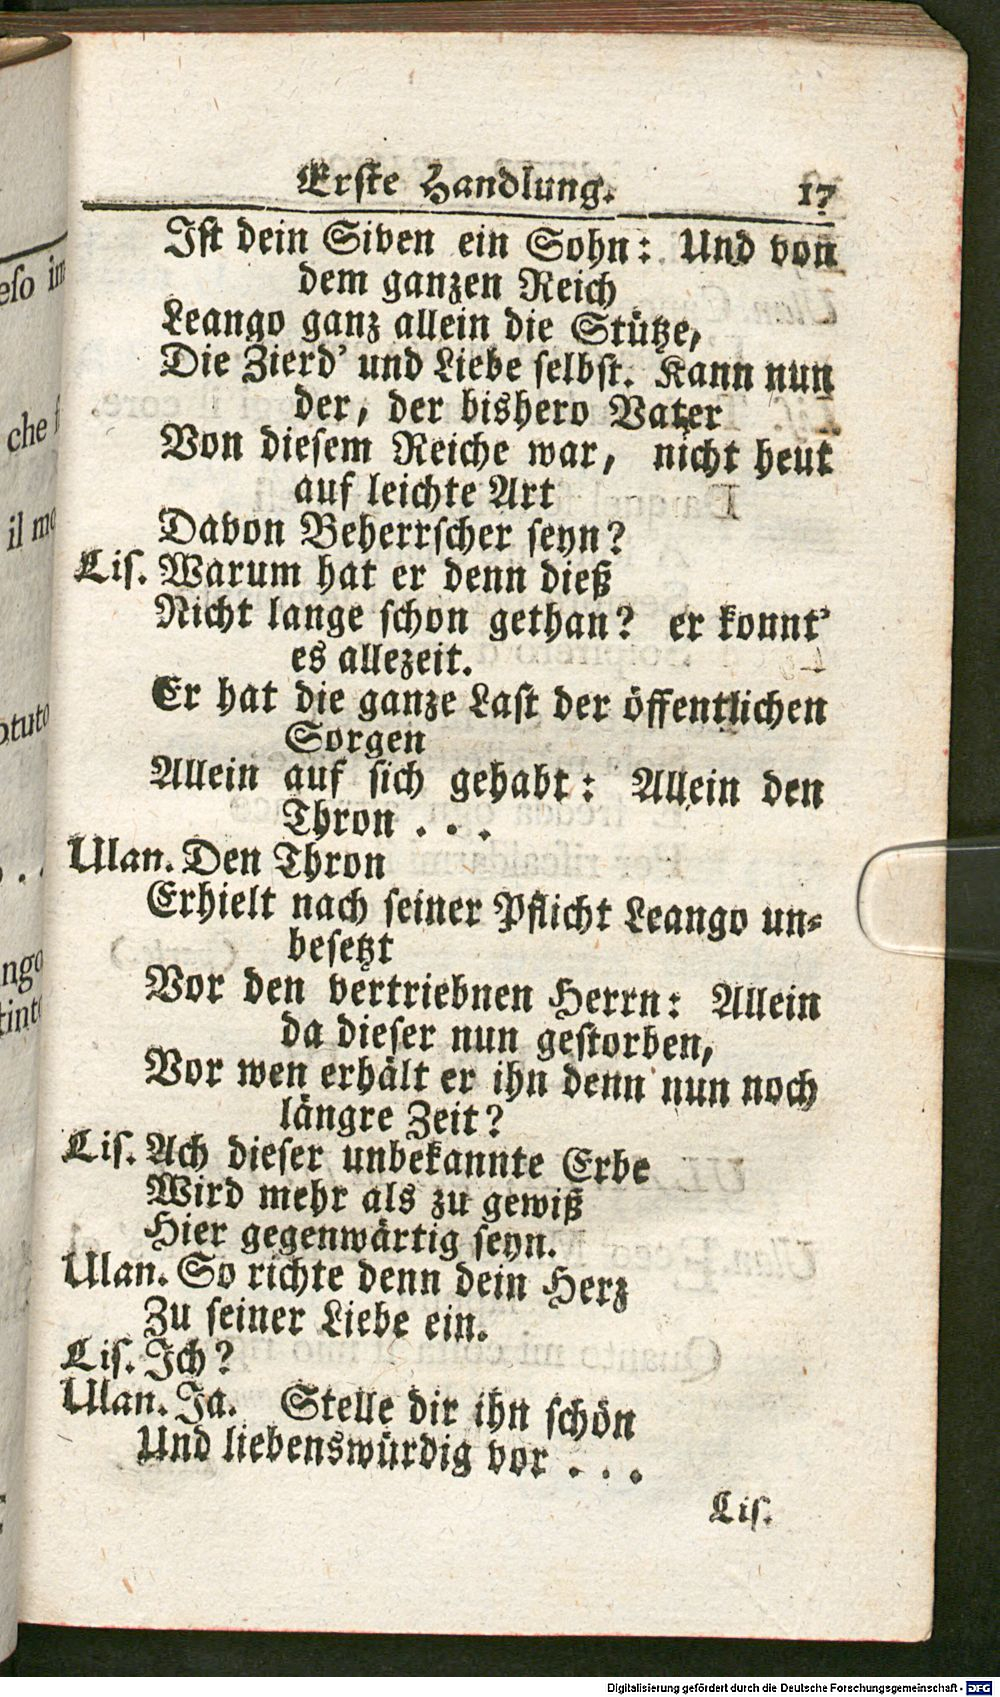 Erste Handlung. 17
Ist dein Siven ein Sohn: Und von
dem ganzen Reich
Leango ganz allein die Stütze,
Die Zierd' und Liebe selbst. Kann nun
der, der bishero Vater
Von diesem Reiche war, nicht heut
auf leichte Art
Davon Beherrscher seyn?
Lis. Warum hat er denn dieß
Nicht lange schon gethan? er konnt'
es allezeit.
Er hat die ganze Last der öffentlichen
Sorgen
Allein auf sich gehabt: Allein den
Thron . . .
Ulan. Den Thron
Erhielt nach seiner Pflicht Leango un-
besetzt
Vor den vertriebnen Herrn: Allein
da dieser nun gestorben,
Vor wen erhält er ihn denn nun noch
längre Zeit?
Lis. Ach dieser unbekannte Erbe
Wird mehr als zu gewiß
Hier gegenwärtig seyn.
Ulan. So richte denn dein Herz
Zu seiner Liebe ein.
Lis. Ich?
Ulan. Ja. Stelle dir ihn schön
Und liebenswürdig vor . . .
Lis.
eso
che
il
Digitalisierung gefördert durch die Deutsche Forschungsgemeinschaft - DFG